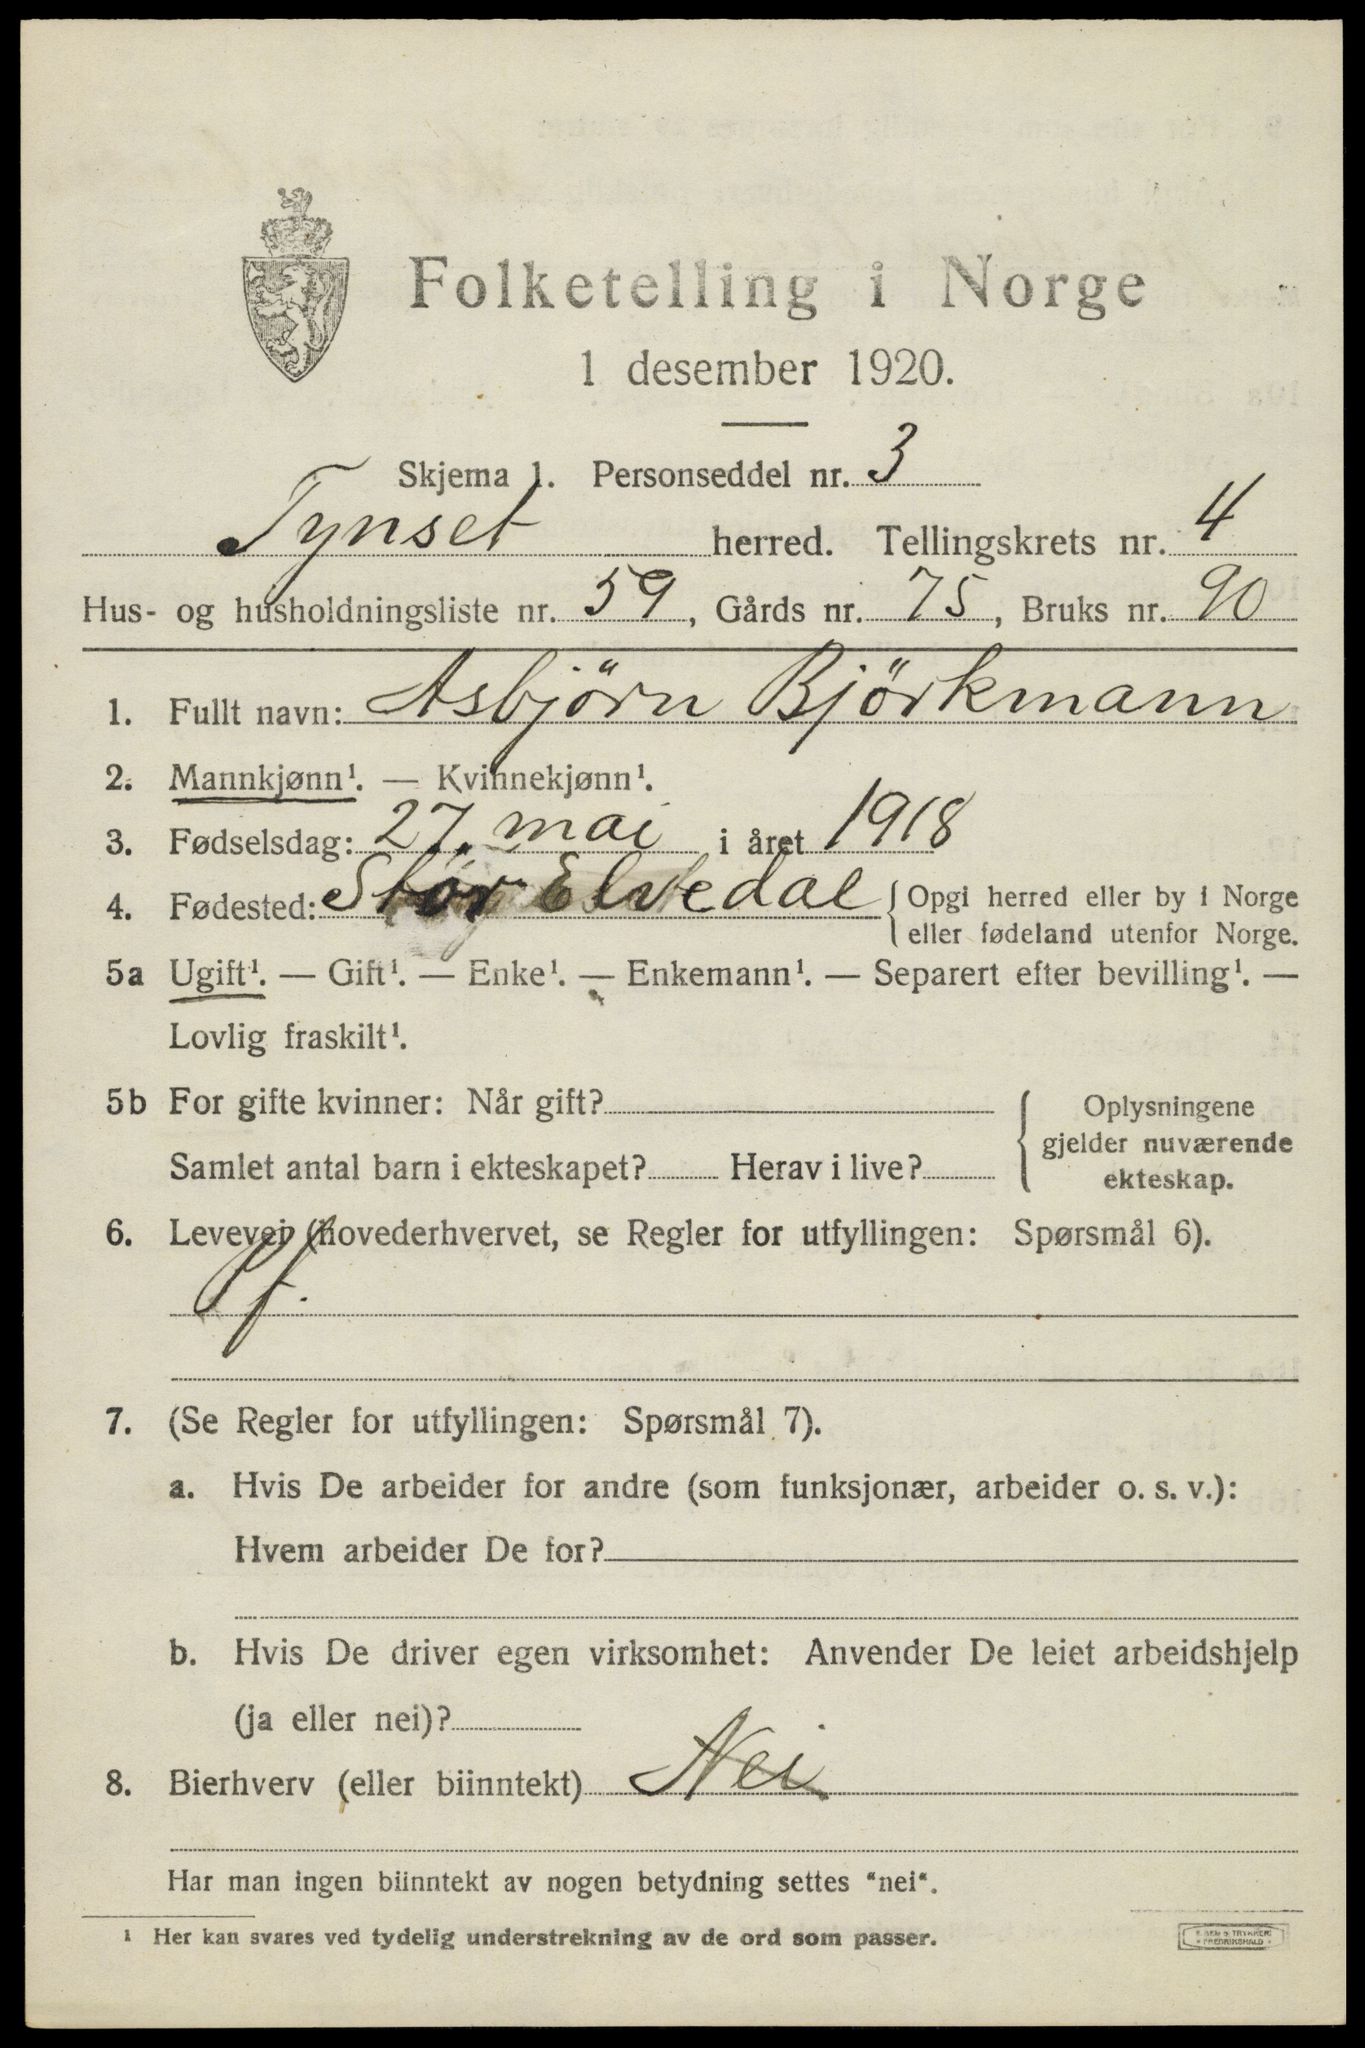 Folketelling i Norge
1 desember 1920.
Skjema 1. Personseddel nr. 3
Tynset herred. Tellingskrets nr. 4
Hus- og husholdningsliste nr. 59, Gårds nr. 75, Bruks nr. 90
1. Fullt navn: Asbjörn Björkmann
2. Mannkjønn¹. — Kvinnekjønn¹.
3. Fødselsdag: 27. mai i året 1918
4. Fødested: Stör Elvedal { Opgi herred eller by i Norge
eller fødeland utenfor Norge.
5a Ugift¹. — Gift¹. — Enke¹. — Enkemann¹. — Separert efter bevilling¹. —
Lovlig fraskilt¹.
5b For gifte kvinner: Når gift? { Oplysningene
gjelder nuværende
Samlet antal barn i ekteskapet? Herav i live?
ekteskap.
6. Levevei (hovederhvervet, se Regler for utfyllingen: Spørsmål 6).
Pf.
7. (Se Regler for utfyllingen: Spørsmål 7).
a. Hvis De arbeider for andre (som funksjonær, arbeider o. s. v.):
Hvem arbeider De for?
b. Hvis De driver egen virksomhet: Anvender De leiet arbeidshjelp
(ja eller nei)?
8. Bierhverv (eller biinntekt) Nei
Har man ingen biinntekt av nogen betydning settes "nei".
¹ Her kan svares ved tydelig understrekning av de ord som passer.